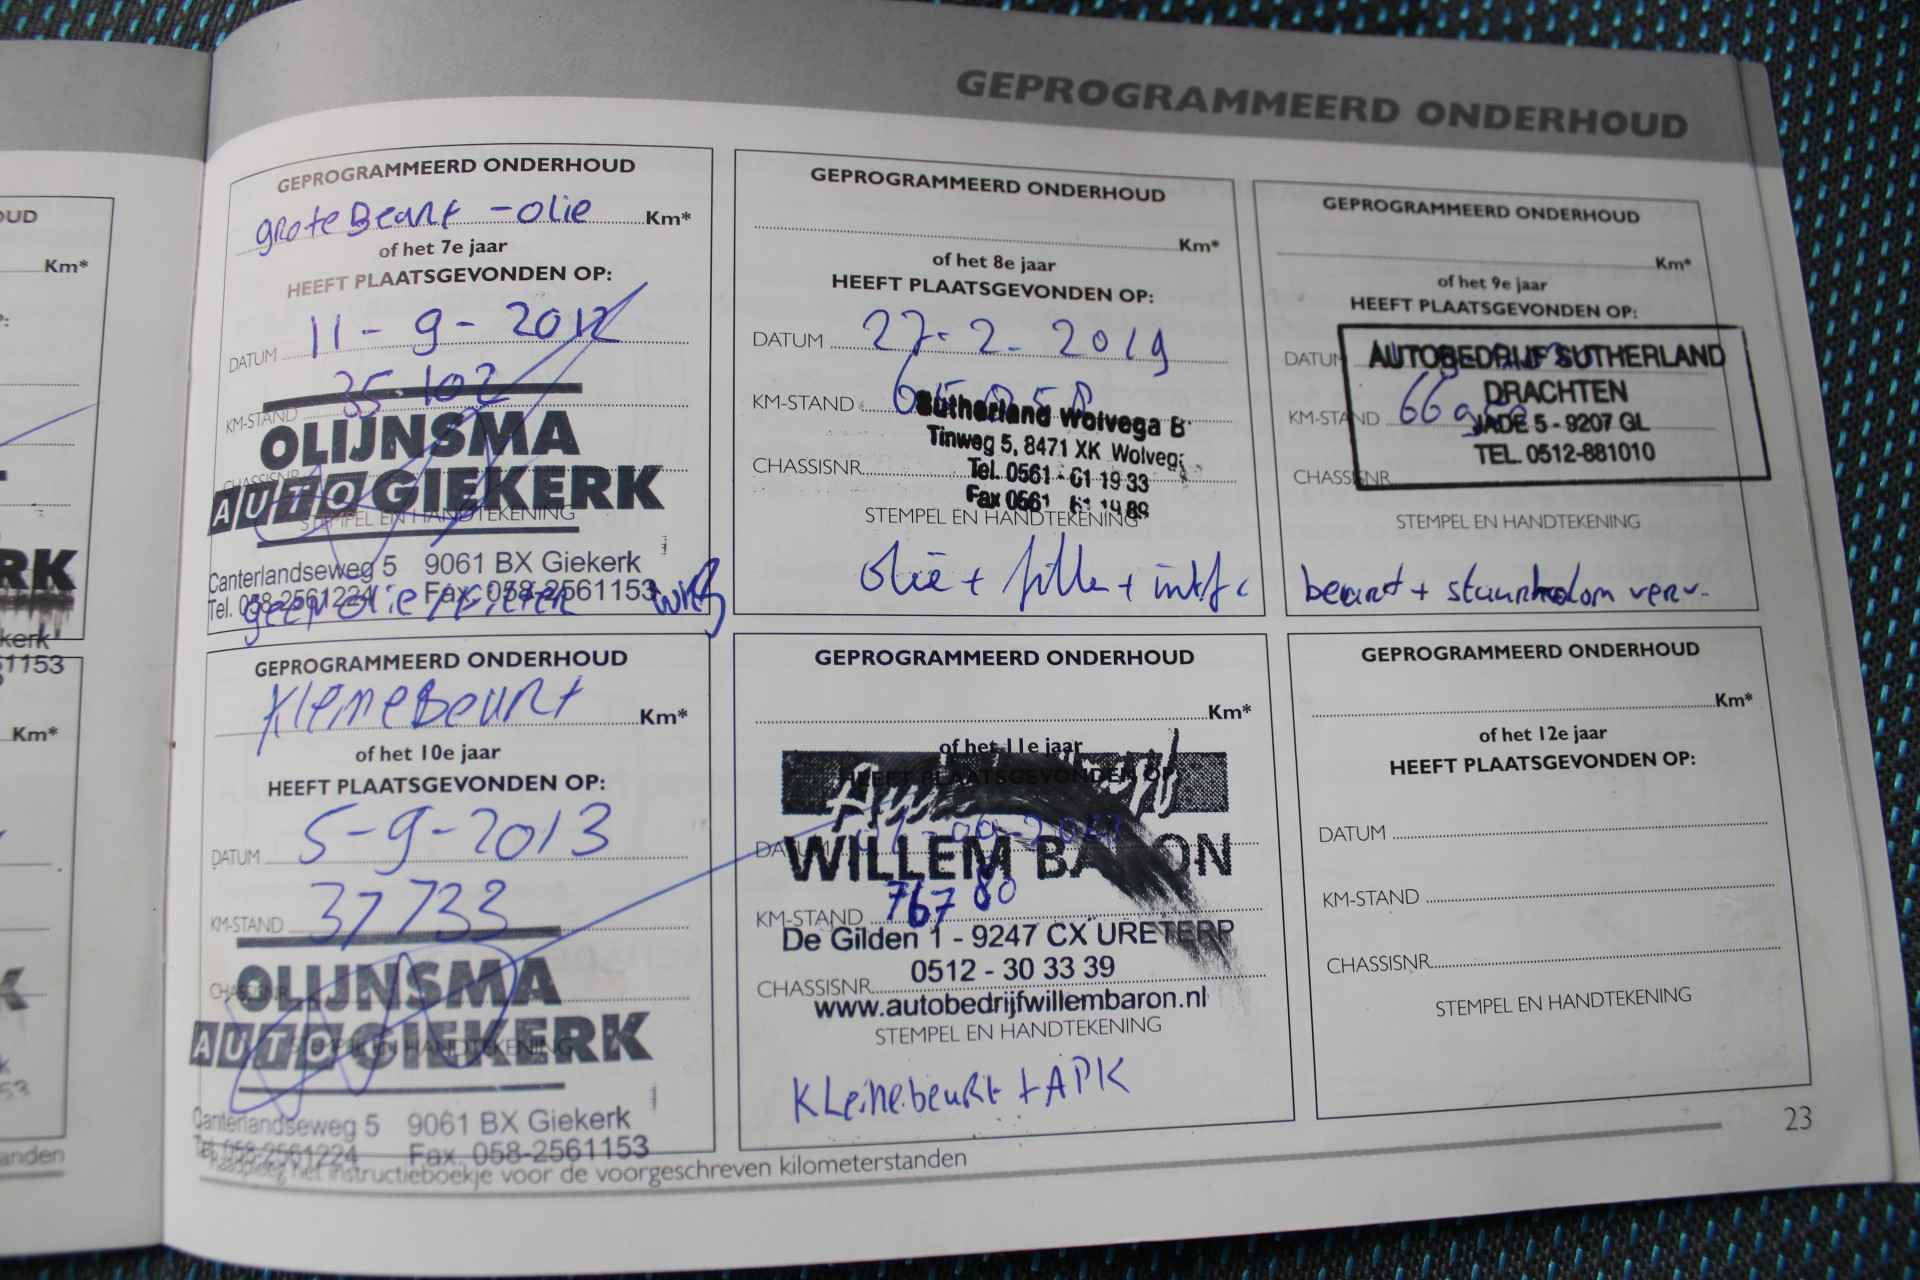 GEPROGRAMMEERD ONDERHOUD
OUD
Km*
RK
kerk
51153
Km*
53
anden
GEPROGRAMMEERD ONDERHOUD
grote Beurt - olie Km*
of het 7e jaar
HEEFT PLAATSGEVONDEN OP:
DATUM 11-9-2012
KM-STAND 35.102
CHASSISNR
OLIJNSMA
AUTO GIEKERK
STEMPEL EN HANDTEKENING
Canterlandseweg 5 9061 BX Giekerk
Tel. 058-2561224 Fax. 058-2561153
geen olie
GEPROGRAMMEERD ONDERHOUD
Km*
of het 8e jaar
HEEFT PLAATSGEVONDEN OP:
DATUM 27-2-2019
KM-STAND
Sutherland Wolvega B
Tinweg 5, 8471 XK Wolvega
CHASSISNR
Tel. 0561 - 61 19 33
Fax 0561 61 19 89
STEMPEL EN HANDTEKENING
olie + filter +
GEPROGRAMMEERD ONDERHOUD
Km*
of het 9e jaar
HEEFT PLAATSGEVONDEN OP:
DATUM
AUTOBEDRIJF SUTHERLAND
DRACHTEN
KM-STAND
JADE 5 - 9207 GL
TEL. 0512-881010
CHASSISNR
STEMPEL EN HANDTEKENING
beurt + stuurkolom verv.
GEPROGRAMMEERD ONDERHOUD
Kleine Beurt Km*
of het 10e jaar
HEEFT PLAATSGEVONDEN OP:
DATUM 5-9-2013
KM-STAND 37733
CHASSISNR
OLIJNSMA
AUTO GIEKERK
STEMPEL EN HANDTEKENING
Canterlandseweg 5 9061 BX Giekerk
Tel. 058-2561224 Fax. 058-2561153
GEPROGRAMMEERD ONDERHOUD
Km*
of het 11e jaar
HEEFT PLAATSGEVONDEN OP:
DATUM
WILLEM BARON
KM-STAND 76780
De Gilden 1 - 9247 CX URETERP
0512 - 30 33 39
CHASSISNR
www.autobedrijfwillembaron.nl
STEMPEL EN HANDTEKENING
Kleine beurt + APK
GEPROGRAMMEERD ONDERHOUD
Km*
of het 12e jaar
HEEFT PLAATSGEVONDEN OP:
DATUM
KM-STAND
CHASSISNR
STEMPEL EN HANDTEKENING
het instructieboekje voor de voorgeschreven kilometerstanden
23